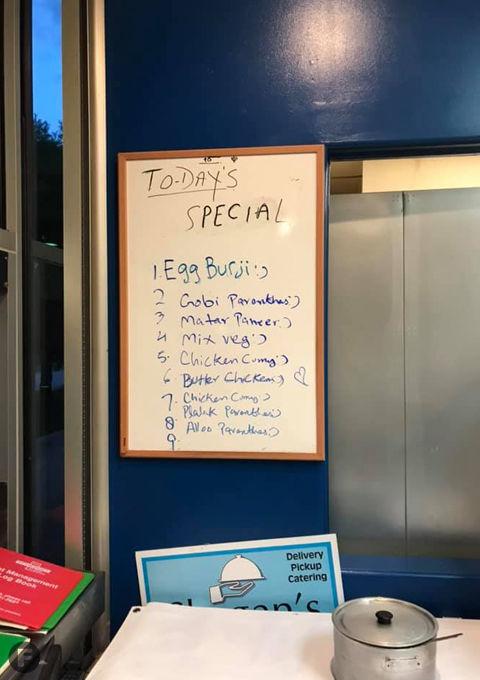 TO-DAY'S
SPECIAL
1. Egg Burji :)
2 Gobi Paranthas :)
3 Matar Paneer :)
4 Mix veg :)
5. Chicken Curry :)
6. Butter Chicken :) ♡
7. Chicken Curry :)
Palak Paranthas :)
8. Alloo Paranthas :)
9.
Delivery
Pickup
Catering
Management
Log Book